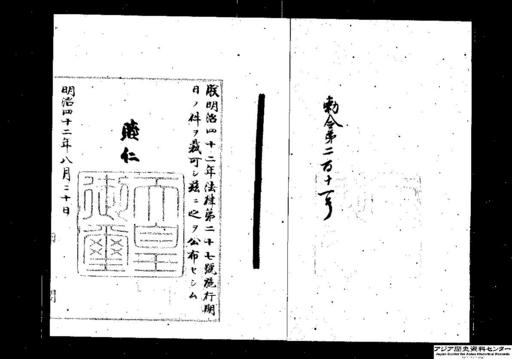 勅令第二百十一号
朕明治四十二年法律第二十七號施行期
日ノ件ヲ裁可シ茲ニ之ヲ公布セシム
睦仁
天皇
御璽
明治四十二年八月二十日
アジア歴史資料センター
Japan Center for Asian Historical Records